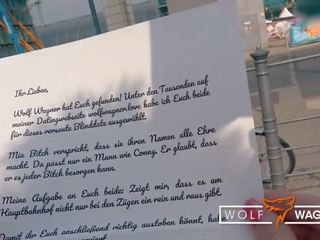 Ihr Lieben,
Wolf Wagner hat Euch gefunden! Unter den Tausenden auf
meiner Datingwebseite wolfwagner.love habe ich Euch beide
für dieses versaute Blinddate ausgewählt.
Mia Bitch verspricht, dass sie ihrem Namen alle Ehre
macht. Da passt nur ein Mann wie Conny. Er glaubt, dass
er es jeder Bitch besorgen kann.
Meine Aufgabe an Euch beide: Zeigt mir, dass es am
Hauptbahnhof nicht nur bei den Zügen ein rein und raus gibt.
Damit ihr Euch anschließend richtig austoben könnt, hab
WOLF WAG